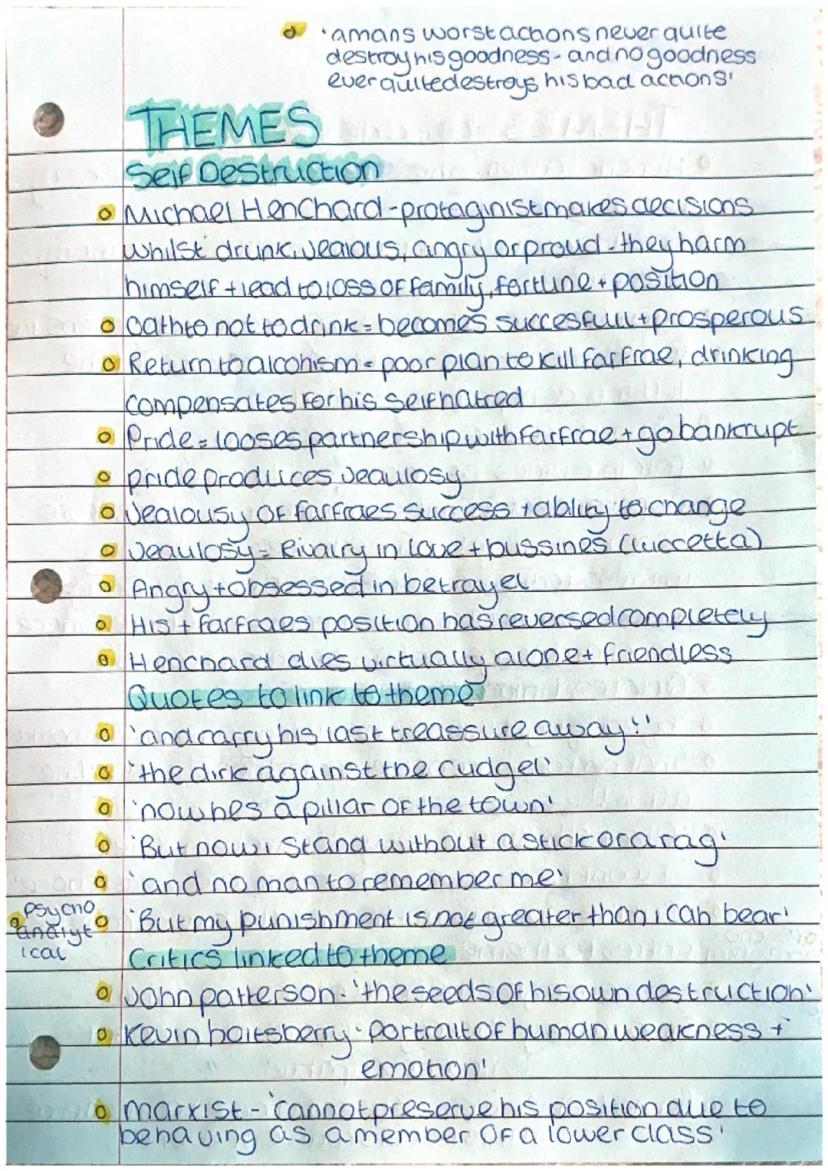 'a mans worst actions never quite
destroy his goodness - and no goodness
ever quite destroys his bad actions'
THEMES
Self Destruction
Michael Henchard - protaginist makes decisions
whilst drunk, jealous, angry or proud - they harm
himself + lead to loss of family, fortune + position
Oath to not to drink = becomes succesfull + prosperous
Return to alcohism = poor plan to kill farfrae, drinking
compensates for his self hatred
Pride = looses partnership with farfrae + go bankrupt
pride produces jeaulosy
Jealousy of farfraes success + ability to change
Jeaulosy = Rivalry in love + bussines (luccetta)
Angry + obsessed in betrayel
His + farfraes position has reversed completely
Henchard dies virtually alone + friendless
Quotes to link to theme
'and rarry his last treassure away!'
'the dirk against the cudgel'
'now hes a pillar of the town'
'But now i stand without a stick or a rag'
'and no man to remember me'
psycho
analyt
ical
'But my punishment is not greater than i can bear'
Critics linked to theme
John patterson - 'the seeds of his own destruction'
Kevin haitsberry - portrait of human weakness +
emotion'
marxist - 'cannot preserve his position due to
behaving as a member of a lower class'